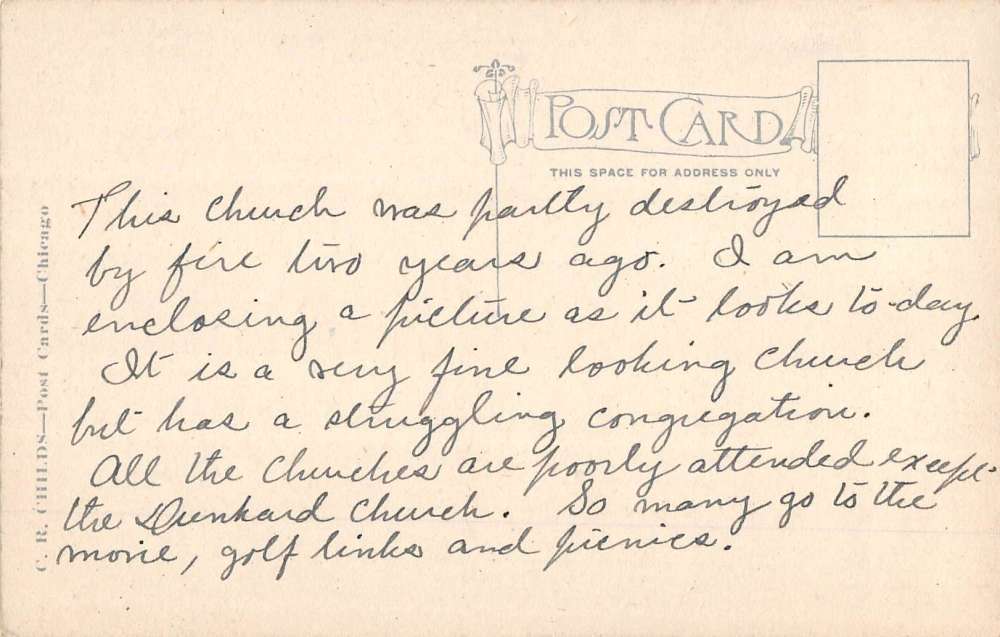 POST CARD
THIS SPACE FOR ADDRESS ONLY
This church was partly destroyed
by fire two years ago. I am
enclosing a picture as it looks to-day.
It is a very fine looking church
but has a struggling congregation.
All the churches are poorly attended except
the Dunkard Church. So many go to the
movie, golf links and picnics.
C. R. CHILDS—Post Cards—Chicago